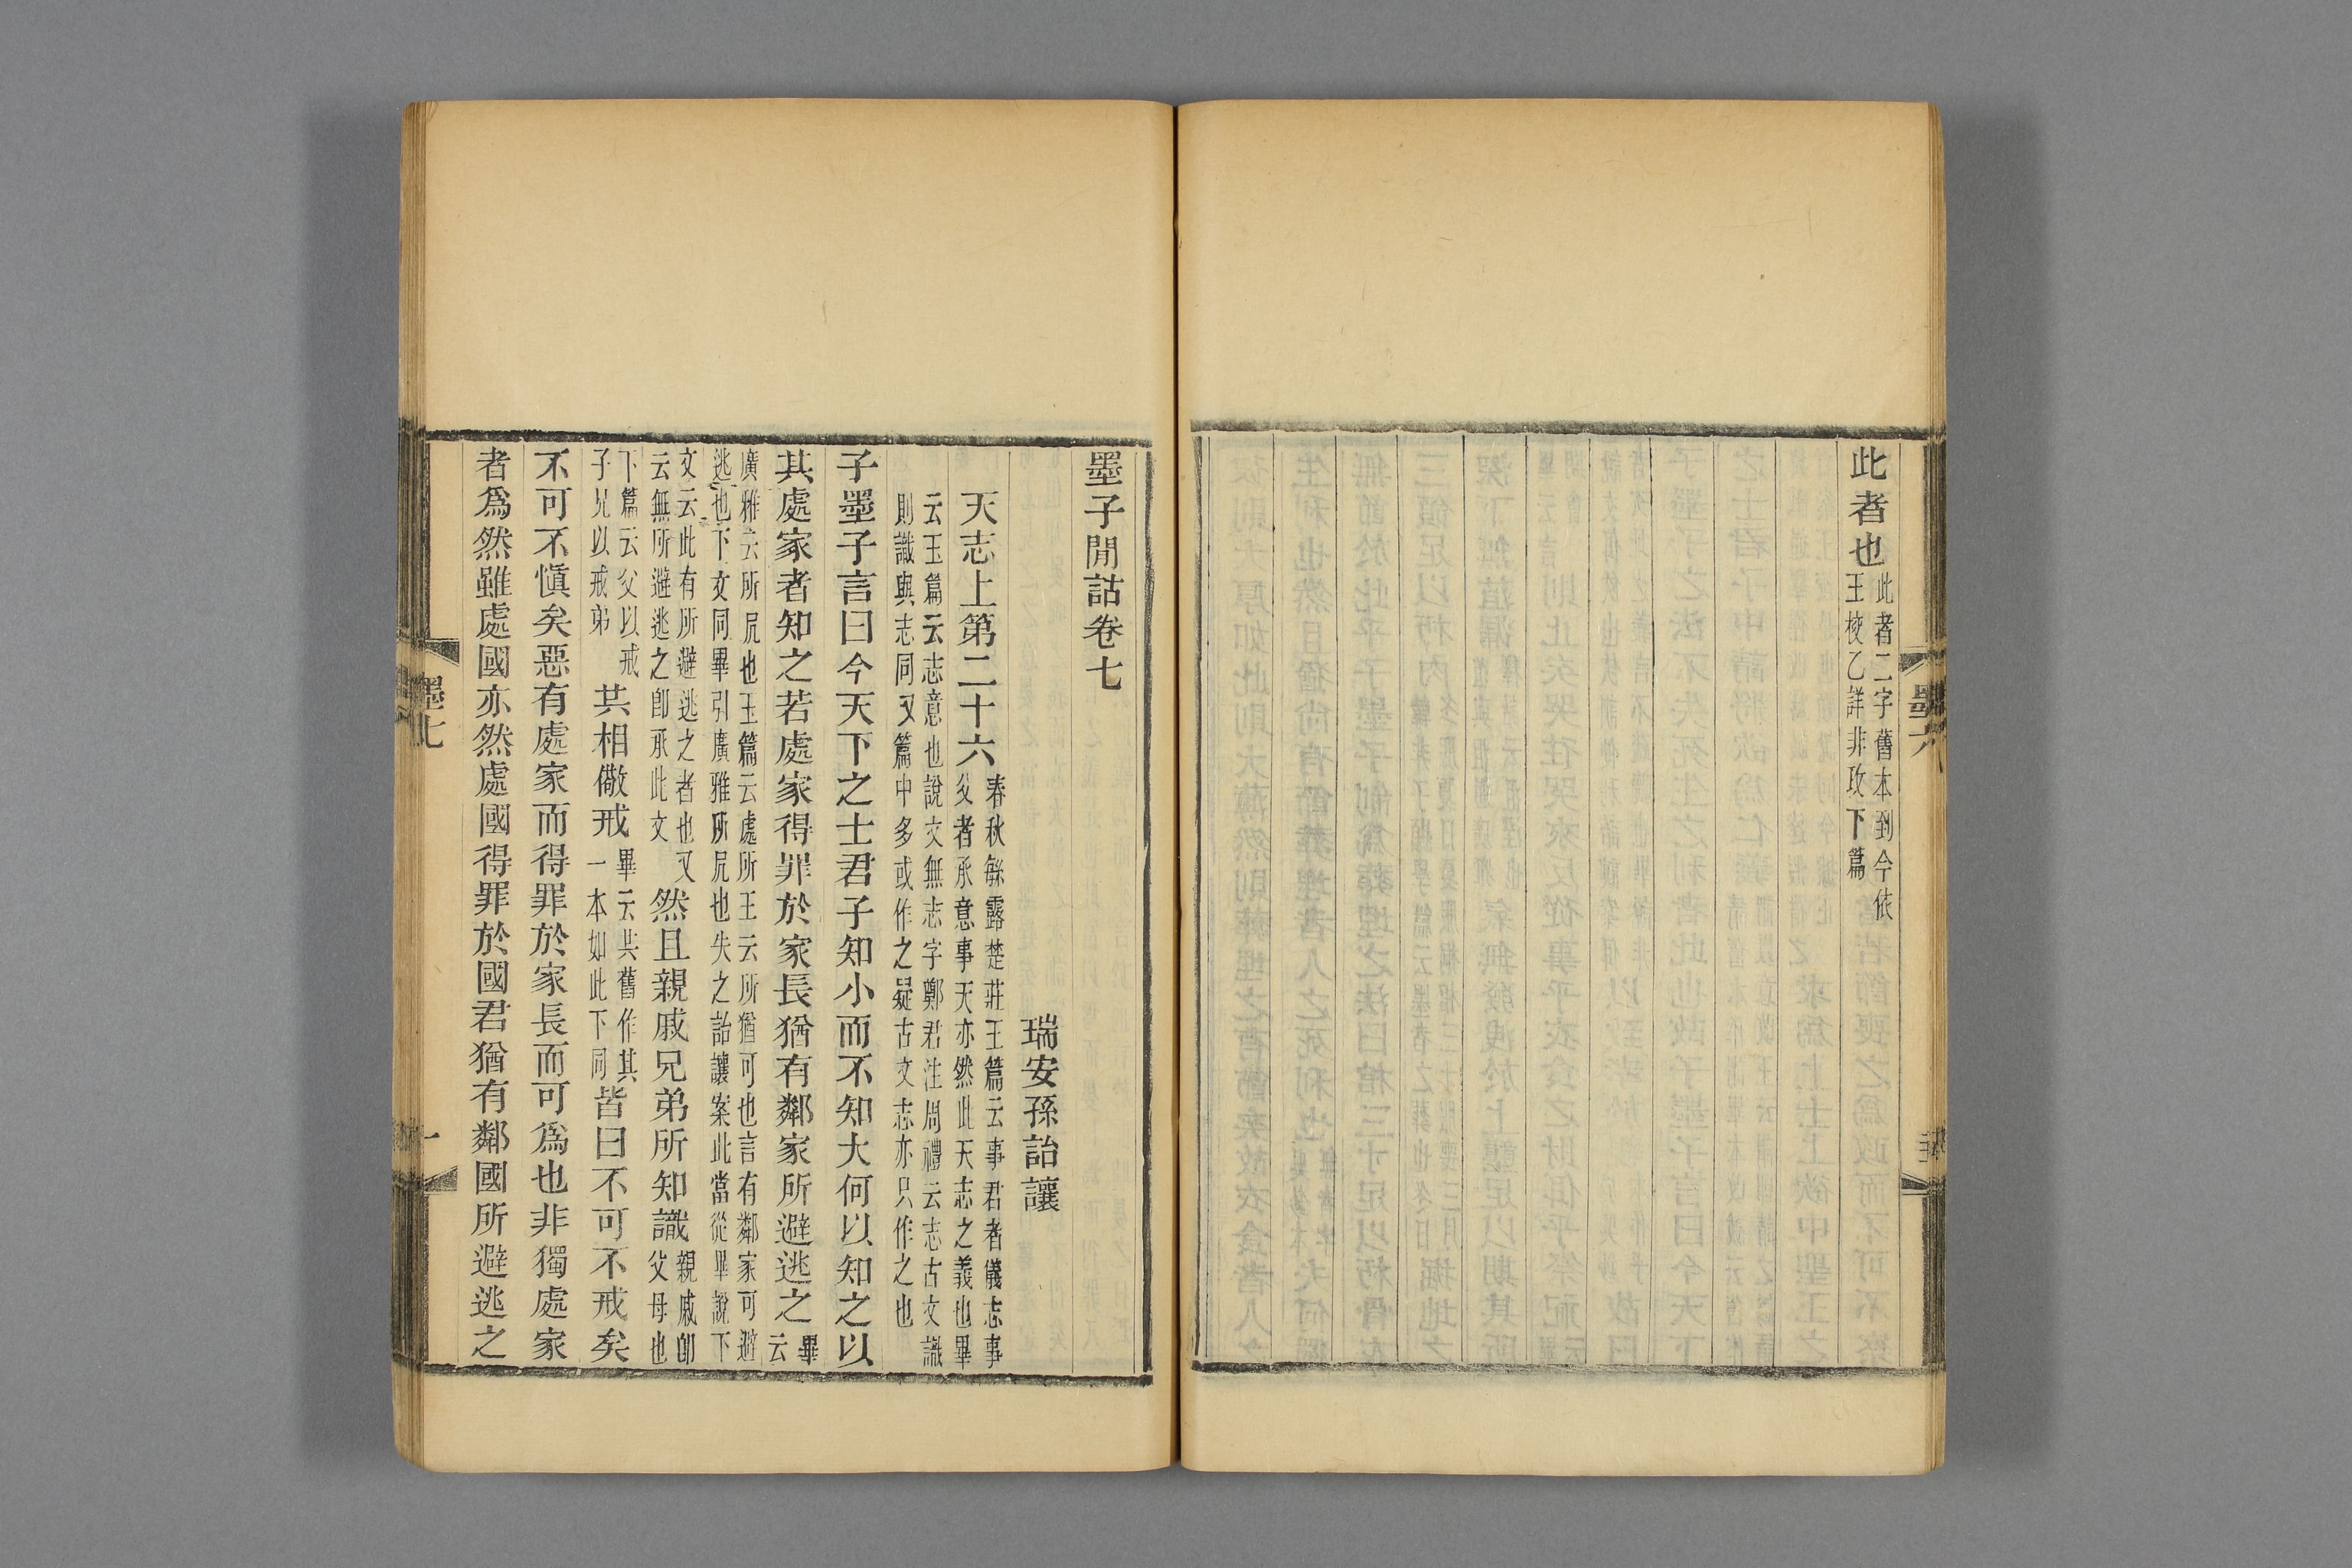 此者也此者二字舊本到今依
王校乙詳非攻下篇
墨六
墨子閒詁卷七
瑞安孫詒讓
天志上第二十六春秋緐露楚莊王篇云事君者儀志事
父者承意事天亦然此天志之義也畢
云玉篇云志意也說文無志字鄭君注周禮云志古文識
則識與志同又篇中多或作之疑古文志亦只作之也
子墨子言曰今天下之士君子知小而不知大何以知之以
其處家者知之若處家得罪於家長猶有鄰家所避逃之畢
云
廣雅云所凥也玉篇云處所王云所猶可也言有鄰家可避
逃也下文同畢引廣雅所凥也失之詒讓案此當從畢說下
文云此有所避逃之者也又
云無所避逃之卽承此文
然且親戚兄弟所知識親戚卽
父母也
下篇云父以戒
子兄以戒弟
其相儆戒畢云其舊作其
一本如此下同
皆曰不可不戒矣
不可不愼矣惡有處家而得罪於家長而可爲也非獨處家
者爲然雖處國亦然處國得罪於國君猶有鄰國所避逃之
墨七
一